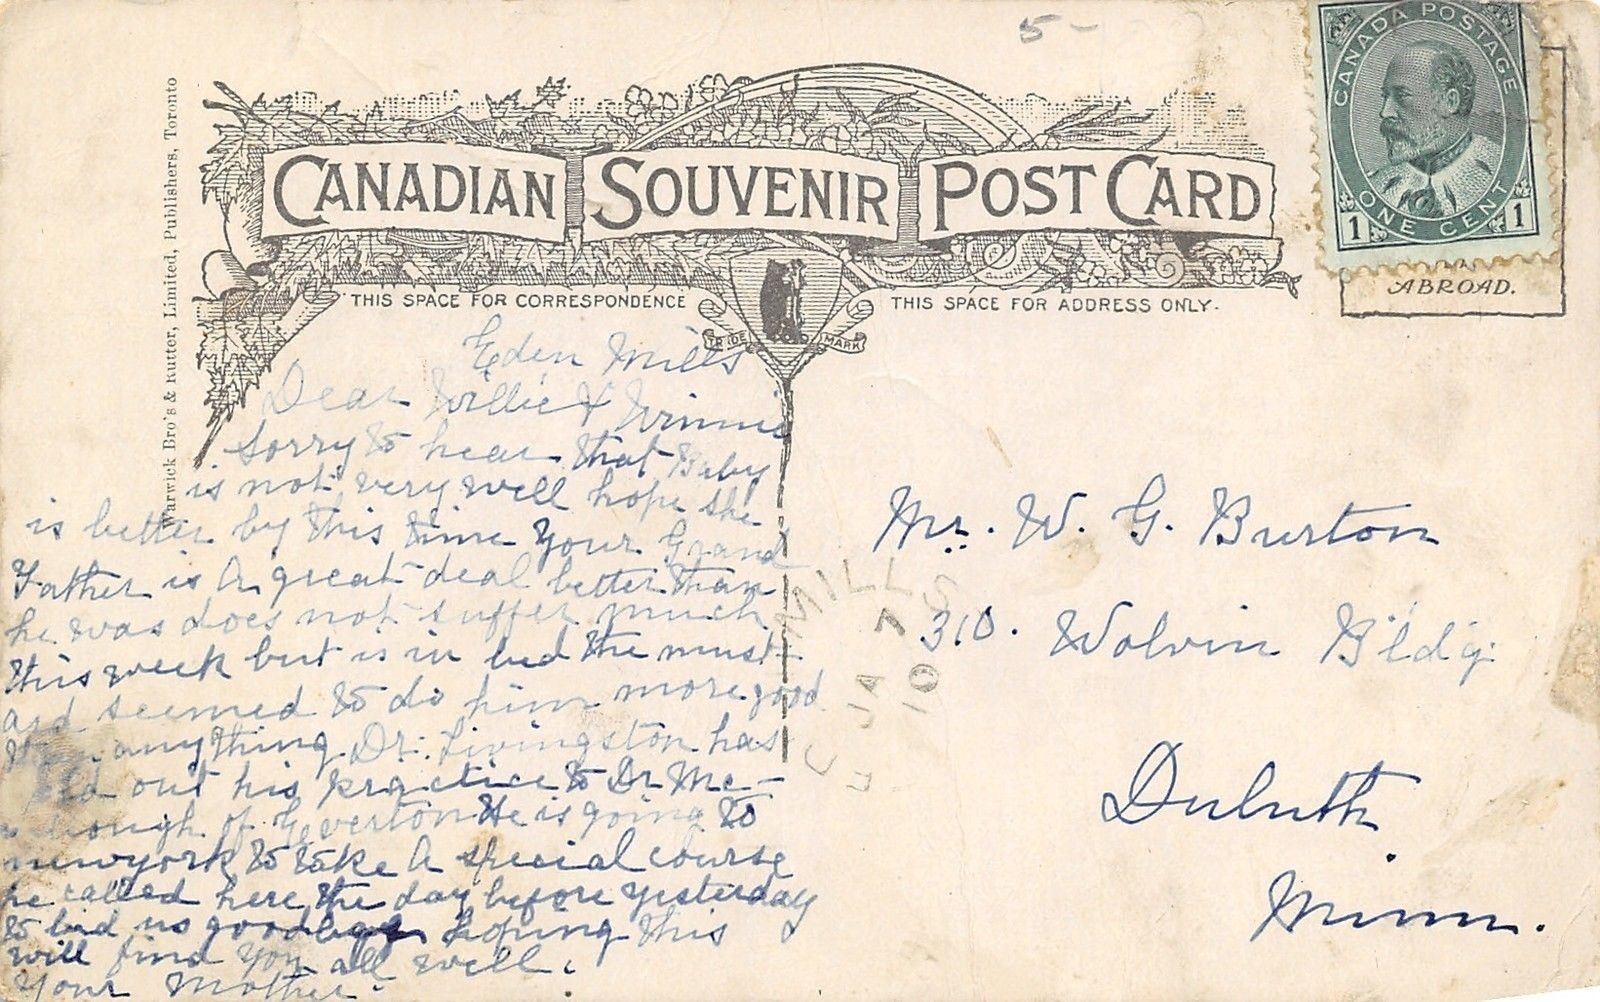 5-
CANADA POSTAGE
ONE CENT
1 1
ABROAD.
CANADIAN SOUVENIR POST CARD
THIS SPACE FOR CORRESPONDENCE
THIS SPACE FOR ADDRESS ONLY.
TRADE MARK
Warwick Bro's & Rutter, Limited, Publishers, Toronto
Eden Mills
Dear Willie & Winnie
Sorry to hear that Baby
is not very well hope she
is better by this time your Grand
Father is A great deal better than
he was does not suffer much
this week but is in bed the must
ard seemed to do him more good
anything Dr. Livingston has
out his practice to Dr Mc-
of Everton He is going to
newyork to take A special course
he called here the day before yesterday
to bid us goodbye hoping this
will find you all well.
your Mother.
MILLS
JA 7
10
Mr. W. G. Burton
310. Wolvin Bldg.
Duluth
Minn.